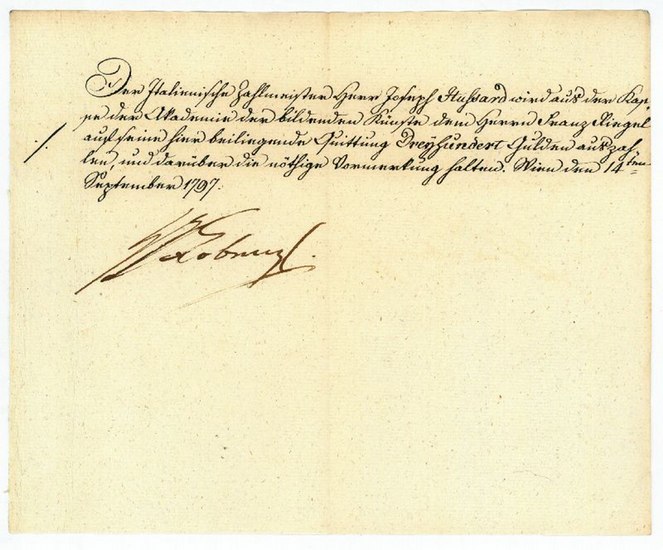 Der Italienische Zahlmeister Herr Joseph Hussard wird aus der Kas-
se der Akademie der bildenden Künste dem Herrn Franz
auf seine hier beiliegende Quittung Dreyhundert Gulden auszah-
len, und darüber die nöthige Vormerkung halten. Wien den 14ten
September 1797.
Cobenzl